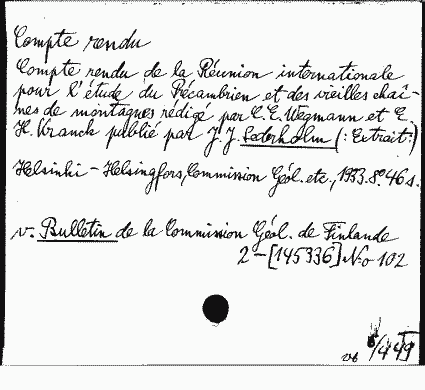 Compte rendu
Compte rendu de la Réunion internationale
pour l'étude du Précambrien et des vieilles chaî-
nes de montagnes rédigé par C.E. Wegmann et E.
H. Kranck publié par J.J. Sederholm (: Extrait:)
Helsinki - Helsingfors, Commission Géol. etc., 1933. 8º. 46 s.
v. Bulletin de la Commission Géol. de Finlande
2-[145336] No 102